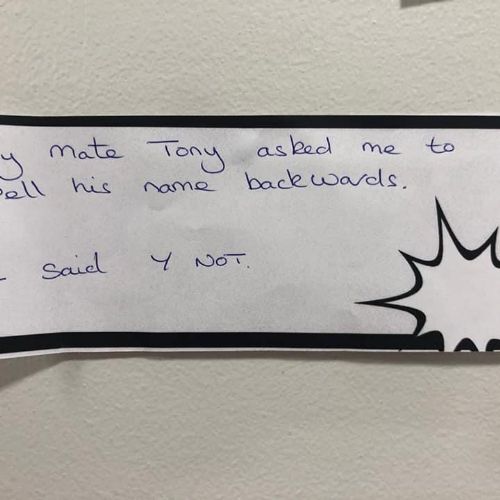 y mate Tony asked me to
pell his name backwards.
I said Y NOT.